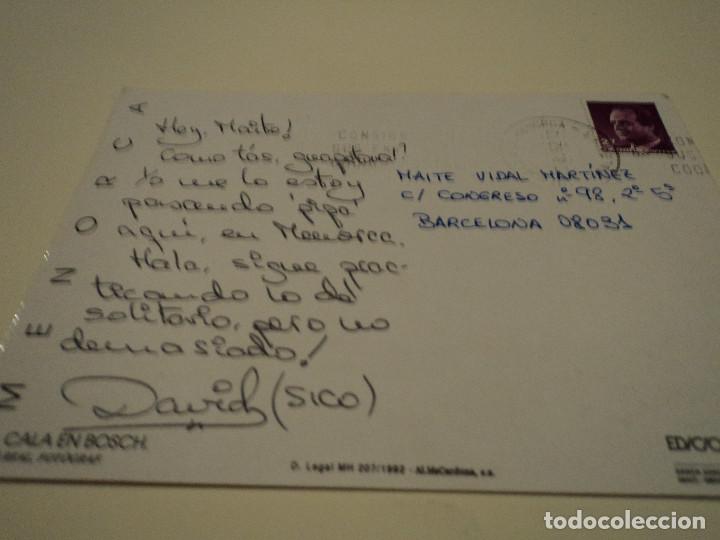 ¡Hey, Maite!
¿Como tás, guapetona!?
Yo me lo estoy
pasando pipa
aquí, en Menorca.
Hala, sigue prac-
ticando lo del
solitario, pero no
demasiado!
David (SICO)
M E N O R C A
MAITE VIDAL MARTÍNEZ
C/ CONGRESO nº 98, 2º 5ª
BARCELONA 08031
CALA EN BOSCH.
D. Legal MH 207/1992 -
EDIC/C
todocoleccion.net